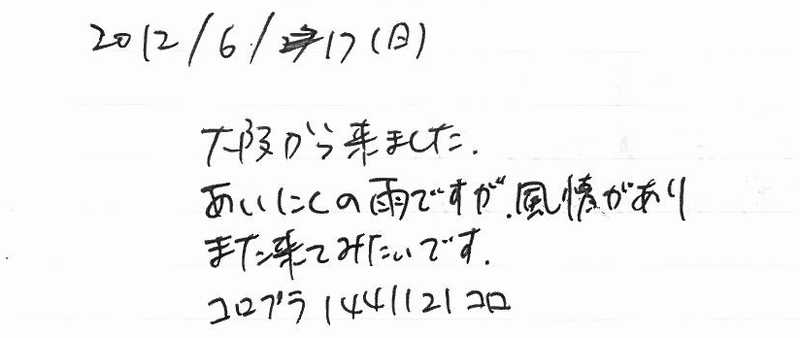 2012/6/17(日)
大阪から来ました.
あいにくの雨ですが,風情があり
また来てみたいです.
コロプラ1441121コロ